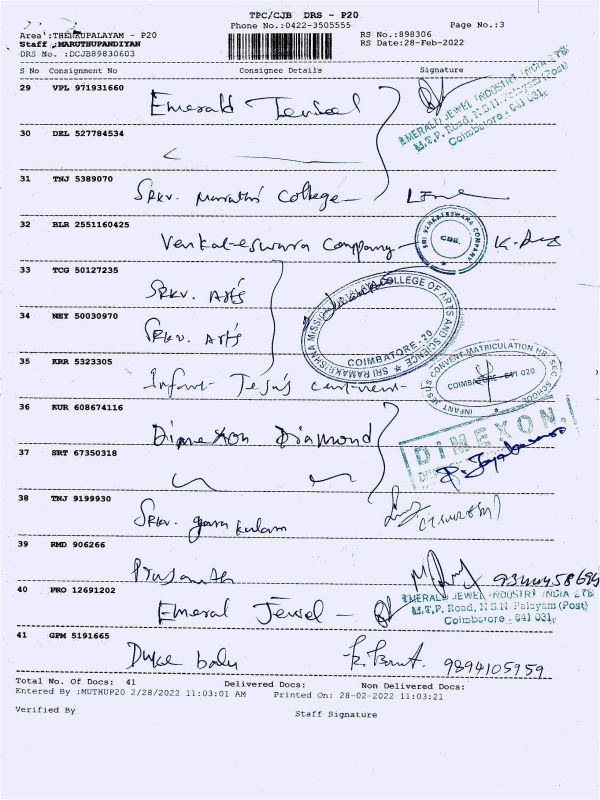 TPC/CJB DRS - P20
Phone No.:0422-3505555 Page No.:3
Area :THEKKUPALAYAM - P20 RS No.:898306
Staff :MARUTHUPANDIYAN RS Date:28-Feb-2022
DRS No. :DCJB89830603
S No Consignment No Consignee Details Signature
29 VPL 971931660
Emerald Jewel
EMERALD JEWEL INDUSTRI INDIA LTD
M.T.P. Road, N.S.N. Palayam (Post)
Coimbatore - 641 031.
30 DEL 527784534
31 TNJ 5389070
Srkv. Maruthi College
32 BLR 2551160425
Venkateswara Company
SRI VENKATESWARA COMPANY
CBE.
33 TCG 50127235
Srkv. Arts
34 NEY 50030970
Srkv. Arts
SRI RAMAKRISHNA MISSION VIDYALAYA COLLEGE OF ARTS AND SCIENCE
COIMBATORE - 20
35 KRR 5323305
Infant Jesus
INFANT JESUS CONVENT MATRICULATION HR. SEC. SCHOOL
COIMBATORE - 641 020
36 KUR 608674116
Dimexon Diamond
DIMEXON
37 SRT 67350318
38 TNJ 9199930
Srkv. gurukulam
39 RMD 906266
Prasanth
40 PRO 12691202
Emeral Jewel
EMERALD JEWEL INDUSTRI INDIA LTD
M.T.P. Road, N.S.N. Palayam (Post)
Coimbatore - 641 031.
41 GPM 5191665
Duke balu 9894105959
Total No. Of Docs: 41 Delivered Docs: Non Delivered Docs:
Entered By :MUTHUP20 2/28/2022 11:03:01 AM Printed On: 28-02-2022 11:03:21
Verified By Staff Signature